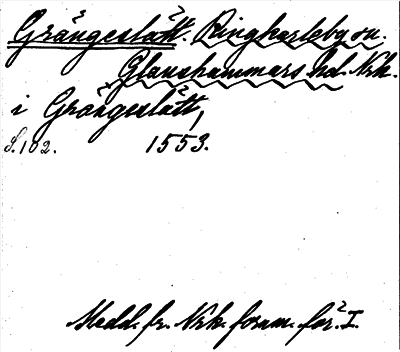 Grängeslätt. Ringkarleby sn.
Glanshammars hd. Nrk.
i Grängeslätt,
S. 102. 1553.
Medd. fr. Nrk. fornm. för. I.